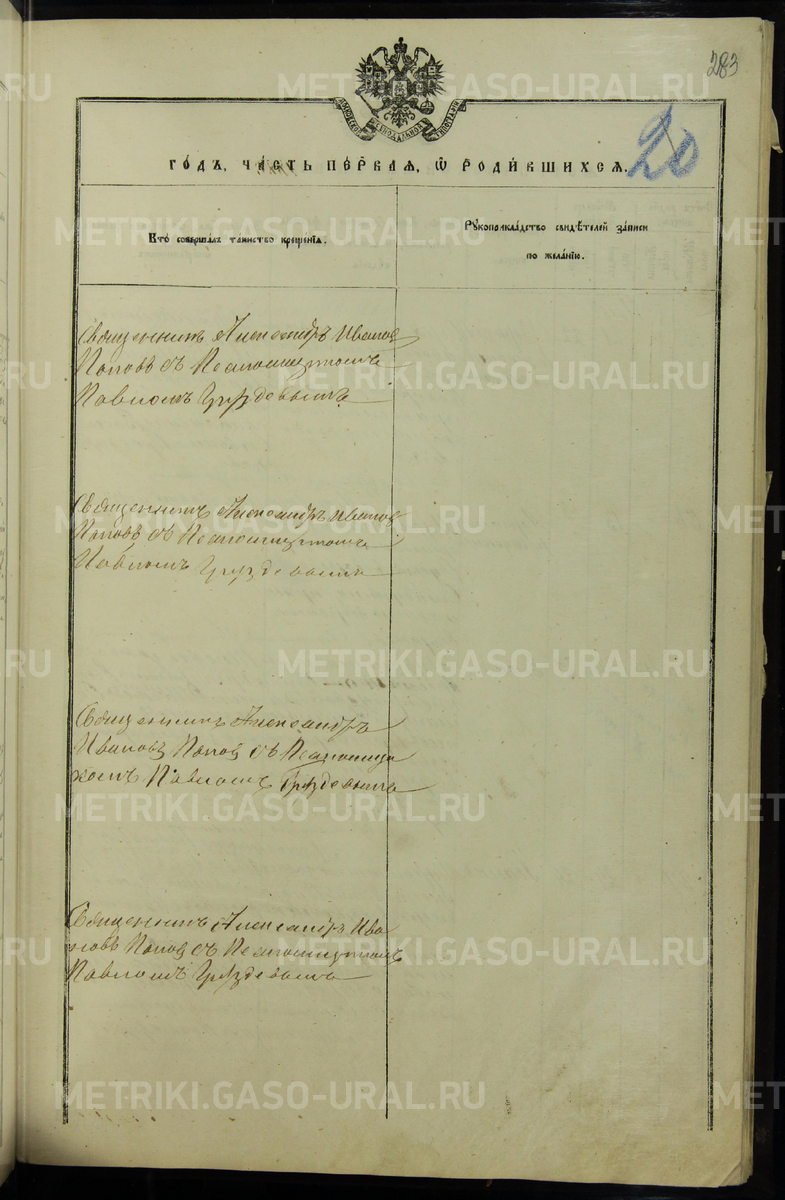 283
20
МОСКОВСКОЙ СѴНОДАЛЬНОЙ ТИПОГРАФІИ
ГО́ДЪ, ЧА́СТЬ ПЕ́РВАЯ, Ѡ҆ РОДИ́ВШИХСЯ.
Кто̀ соверша́лъ та́инство креще́нїѧ.
Рꙋкоприкла́дство свидѣ́телей за́писи
по жела́нїю.
Священникъ Александръ Иванов
Поповъ съ Псаломщикомъ
Павломъ Груздевымъ
Священникъ Александръ Иванов
Поповъ съ Псаломщикомъ
Павломъ Груздевымъ
Священникъ Александръ
Ивановъ Попов съ Псаломщи
комъ Павломъ Груздевымъ
Священникъ Александръ Ива
новъ Попов съ Псаломщикомъ
Павломъ Груздевымъ
METRIKI.GASO-URAL.RU